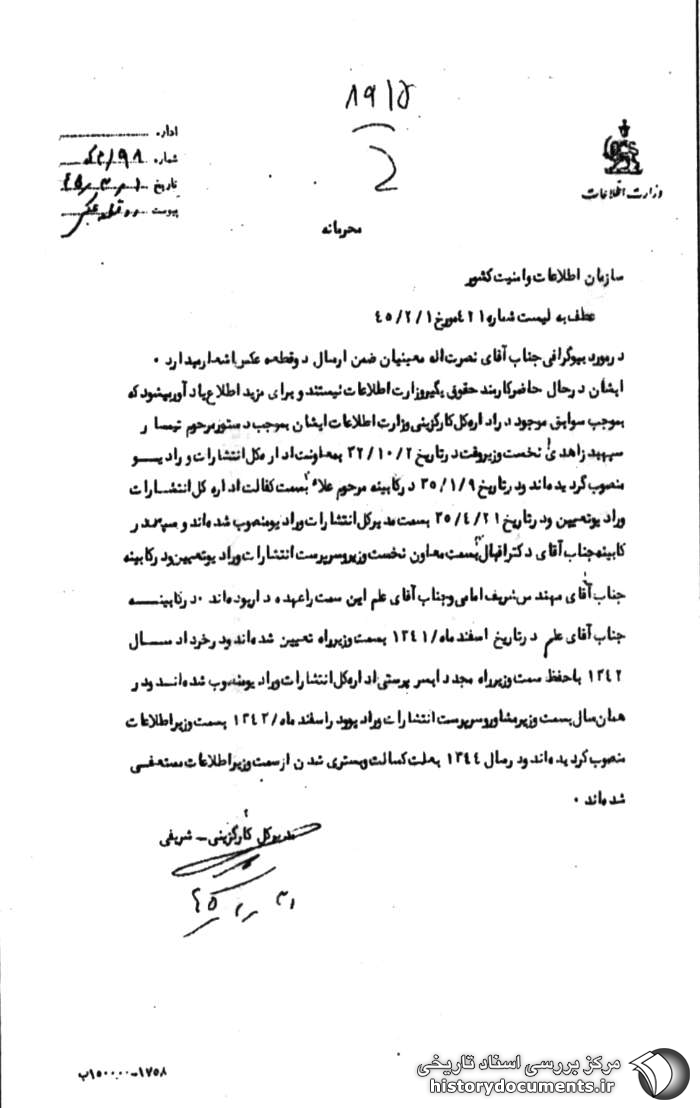 ۱۹۱۵
وزارت اطلاعات
اداره
شماره
تاریخ
پیوست
محرمانه
سازمان اطلاعات وامنیت کشور
عطف به لیست شماره ۴۲۱ مورخ ۴۵/۲/۱
درمورد بیوگرافی جناب آقای نصرت اله معینیان ضمن ارسال دوقطعه عکس اشعارمیدارد .
ایشان درحال حاضرکارمند حقوق بگیروزارت اطلاعات نیستند و برای مزید اطلاع یادآورمیشود که
بموجب سوابق موجود دراداره کل کارگزینی وزارت اطلاعات ایشان بموجب دستورمرحوم تیمسار
سپهبد زاهدی نخست وزیروقت درتاریخ ۳۲/۱۰/۲ بمعاونت اداره کل انتشارات و رادیو
منصوب گردیده اند ودرتاریخ ۳۵/۱/۹ درکابینه مرحوم علاء بسمت کفالت اداره کل انتشارات
ورادیوتعیین ودرتاریخ ۳۵/۴/۲۱ بسمت مدیرکل انتشارات ورادیومنصوب شده اند و سپس در
کابینه جناب آقای دکتراقبال بسمت معاون نخست وزیروسرپرست انتشارات ورادیوتعیین ودرکابینه
جناب آقای مهندس شریف امامی وجناب آقای علم این سمت راعهده داربوده اند .درکابینه
جناب آقای علم درتاریخ اسفند ماه/۱۳۴۱ بسمت وزیرراه تعیین شده اند ودرخرداد سال
۱۳۴۲ باحفظ سمت وزیرراه مجددا بسرپرستی اداره کل انتشارات ورادیومنصوب شده اند ودر
همان سال بسمت وزیرمشاوروسرپرست انتشارات ورادیوودراسفند ماه/۱۳۴۲ بسمت وزیراطلاعات
منصوب گردیده اند ودرسال ۱۳۴۴ بعلت کسالت وبستری شدن ازسمت وزیراطلاعات مستعفی
شده اند .
مدیرکل کارگزینی – شریفی
۱۷۵۸-۱۵۰۰۰۰ب
مرکز بررسی اسناد تاریخی
historydocuments.ir